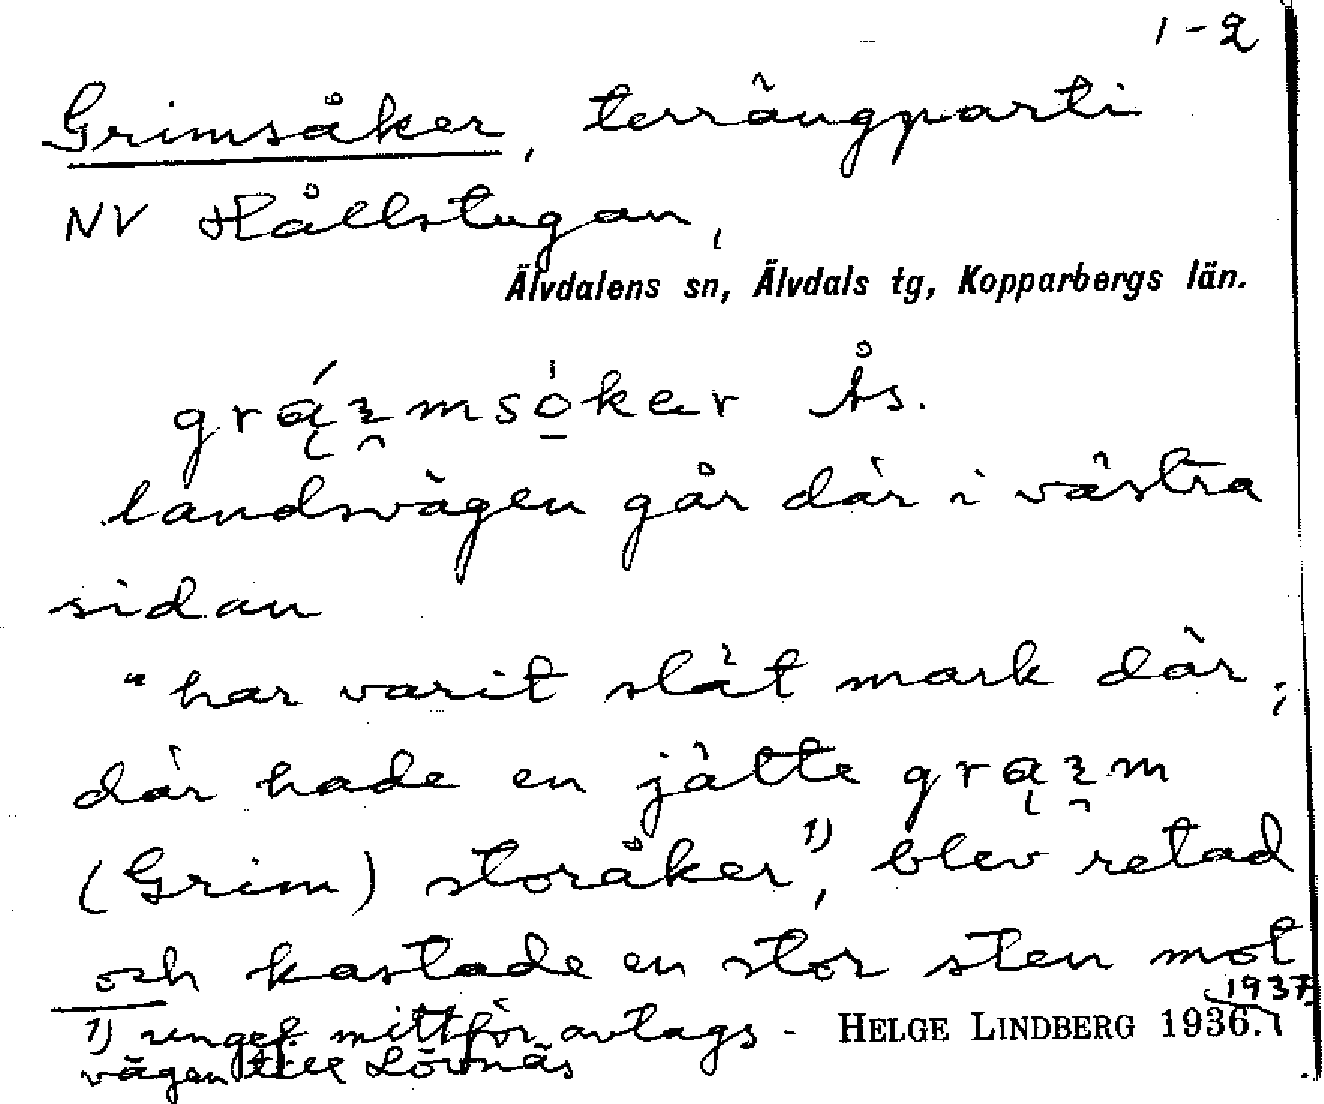 1-2
Grimsåker, terrängparti
NV Hållstugan,
Älvdalens sn, Älvdals tg, Kopparbergs län.
Ås.
landsvägen går där i västra
sidan
"har varit slät mark där;
där hade en jätte
(Grim) storåker"1), blev retad
och kastade en stor sten mot
1937
1) ungef. mittför avtags- HELGE LINDBERG 1936.
vägen till Lövnäs